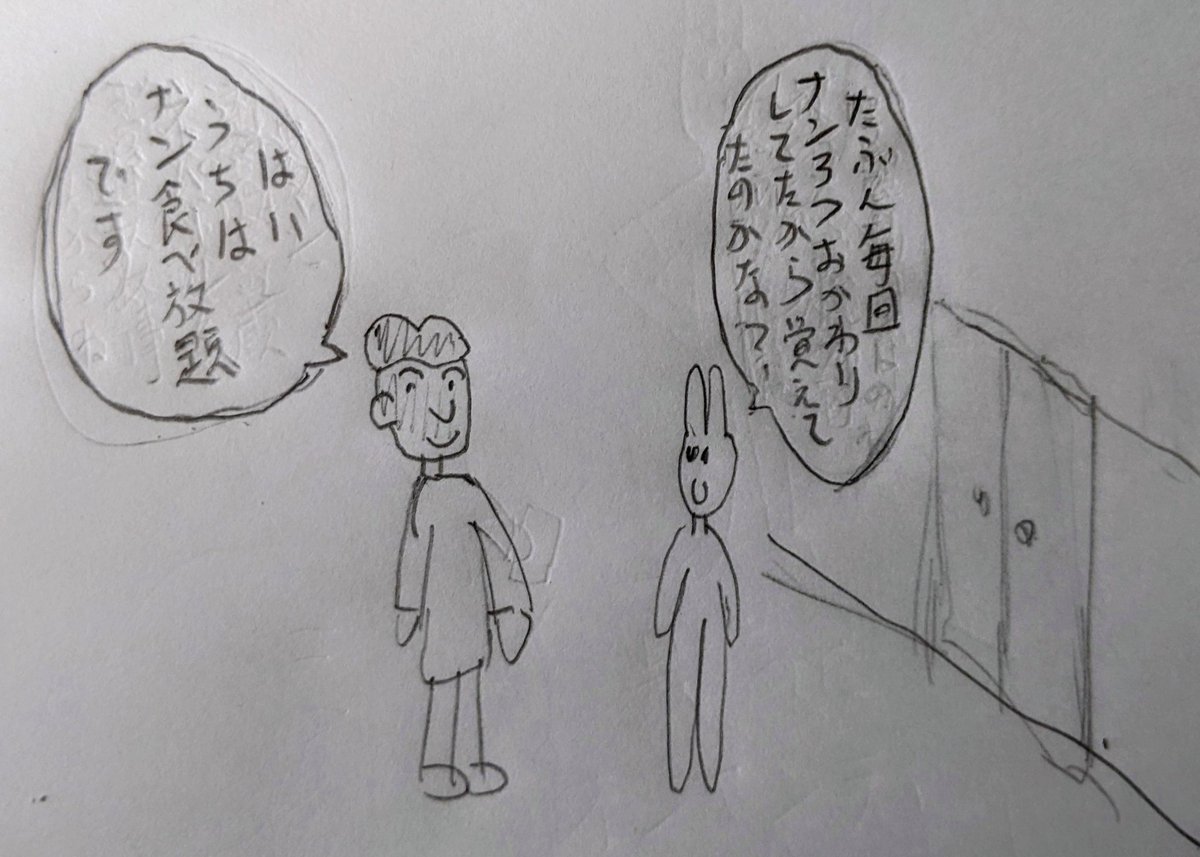 たぶん毎回
ナン3つおかわり
してたから覚えて
たのかなって
はい
うちは
ナン食べ放題
です